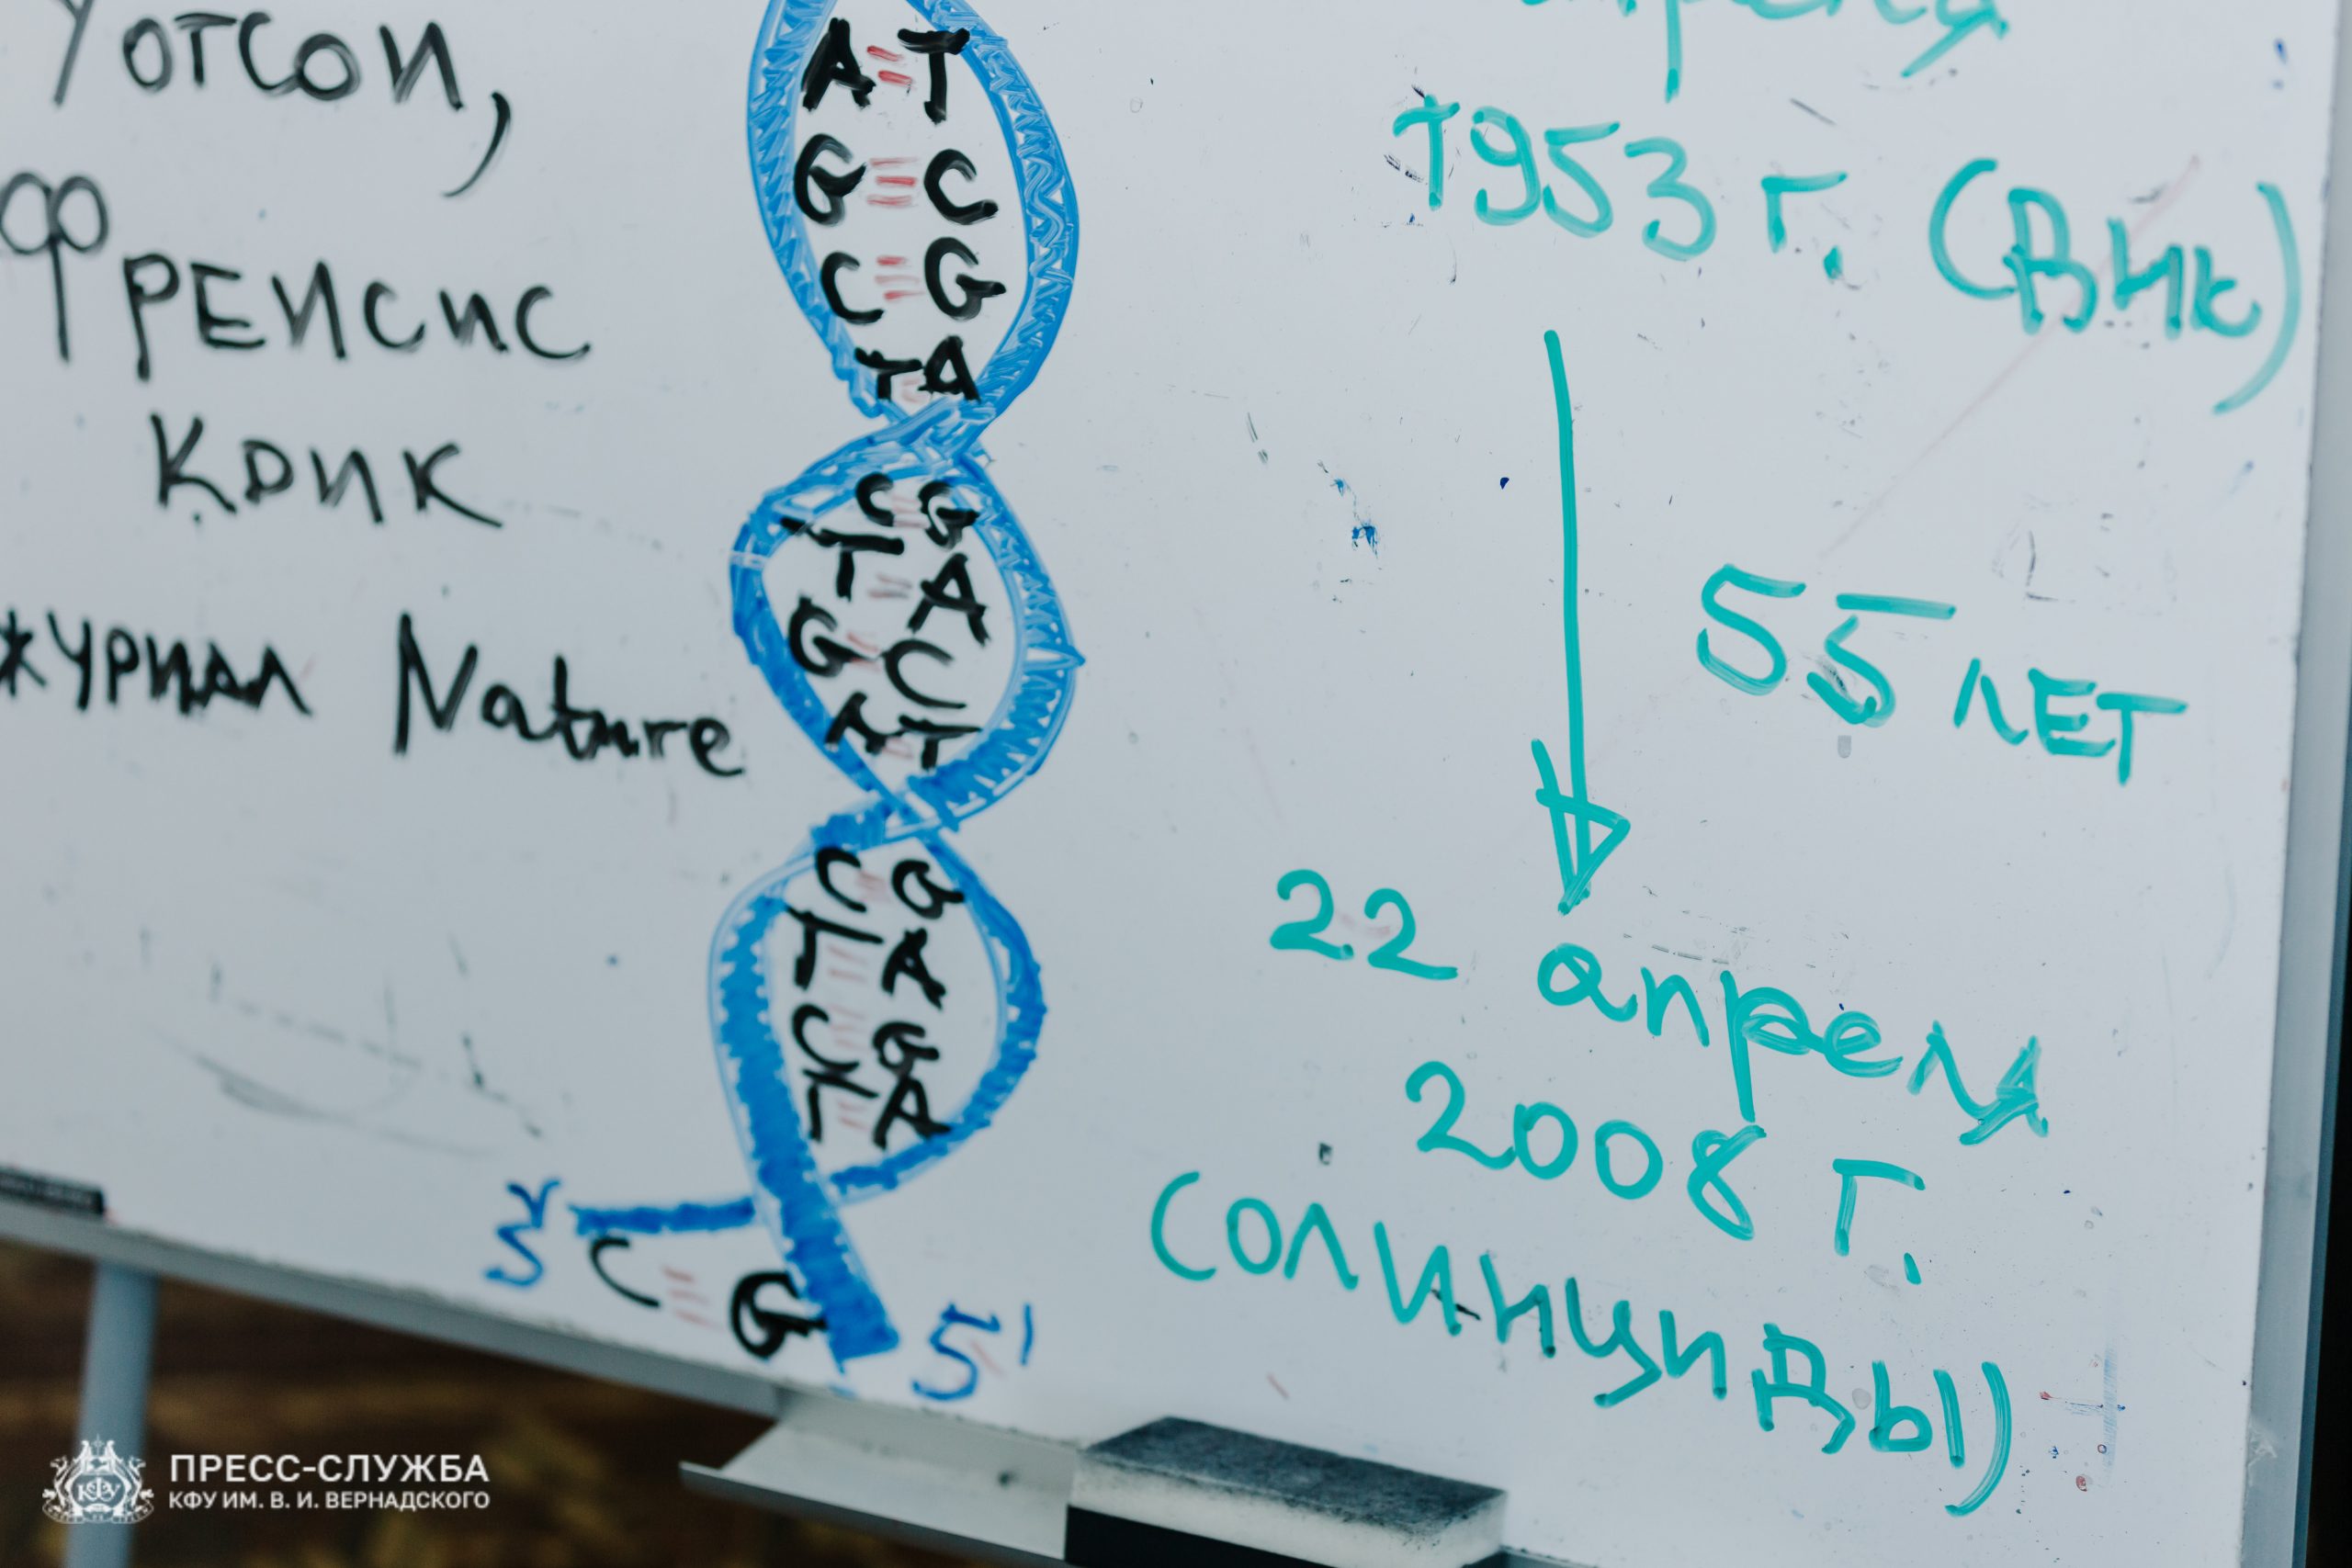 Уотсон,
Фрейсис
Крик
журнал Nature
A T
G C
C G
T A
C G
T A
G C
A T
C G
T A
C G
T A
3'
C G
5'
1953 г. (ВИК)
55 лет
22 апреля
2008 г.
(солинциды)
ПРЕСС-СЛУЖБА
КФУ ИМ. В. И. ВЕРНАДСКОГО